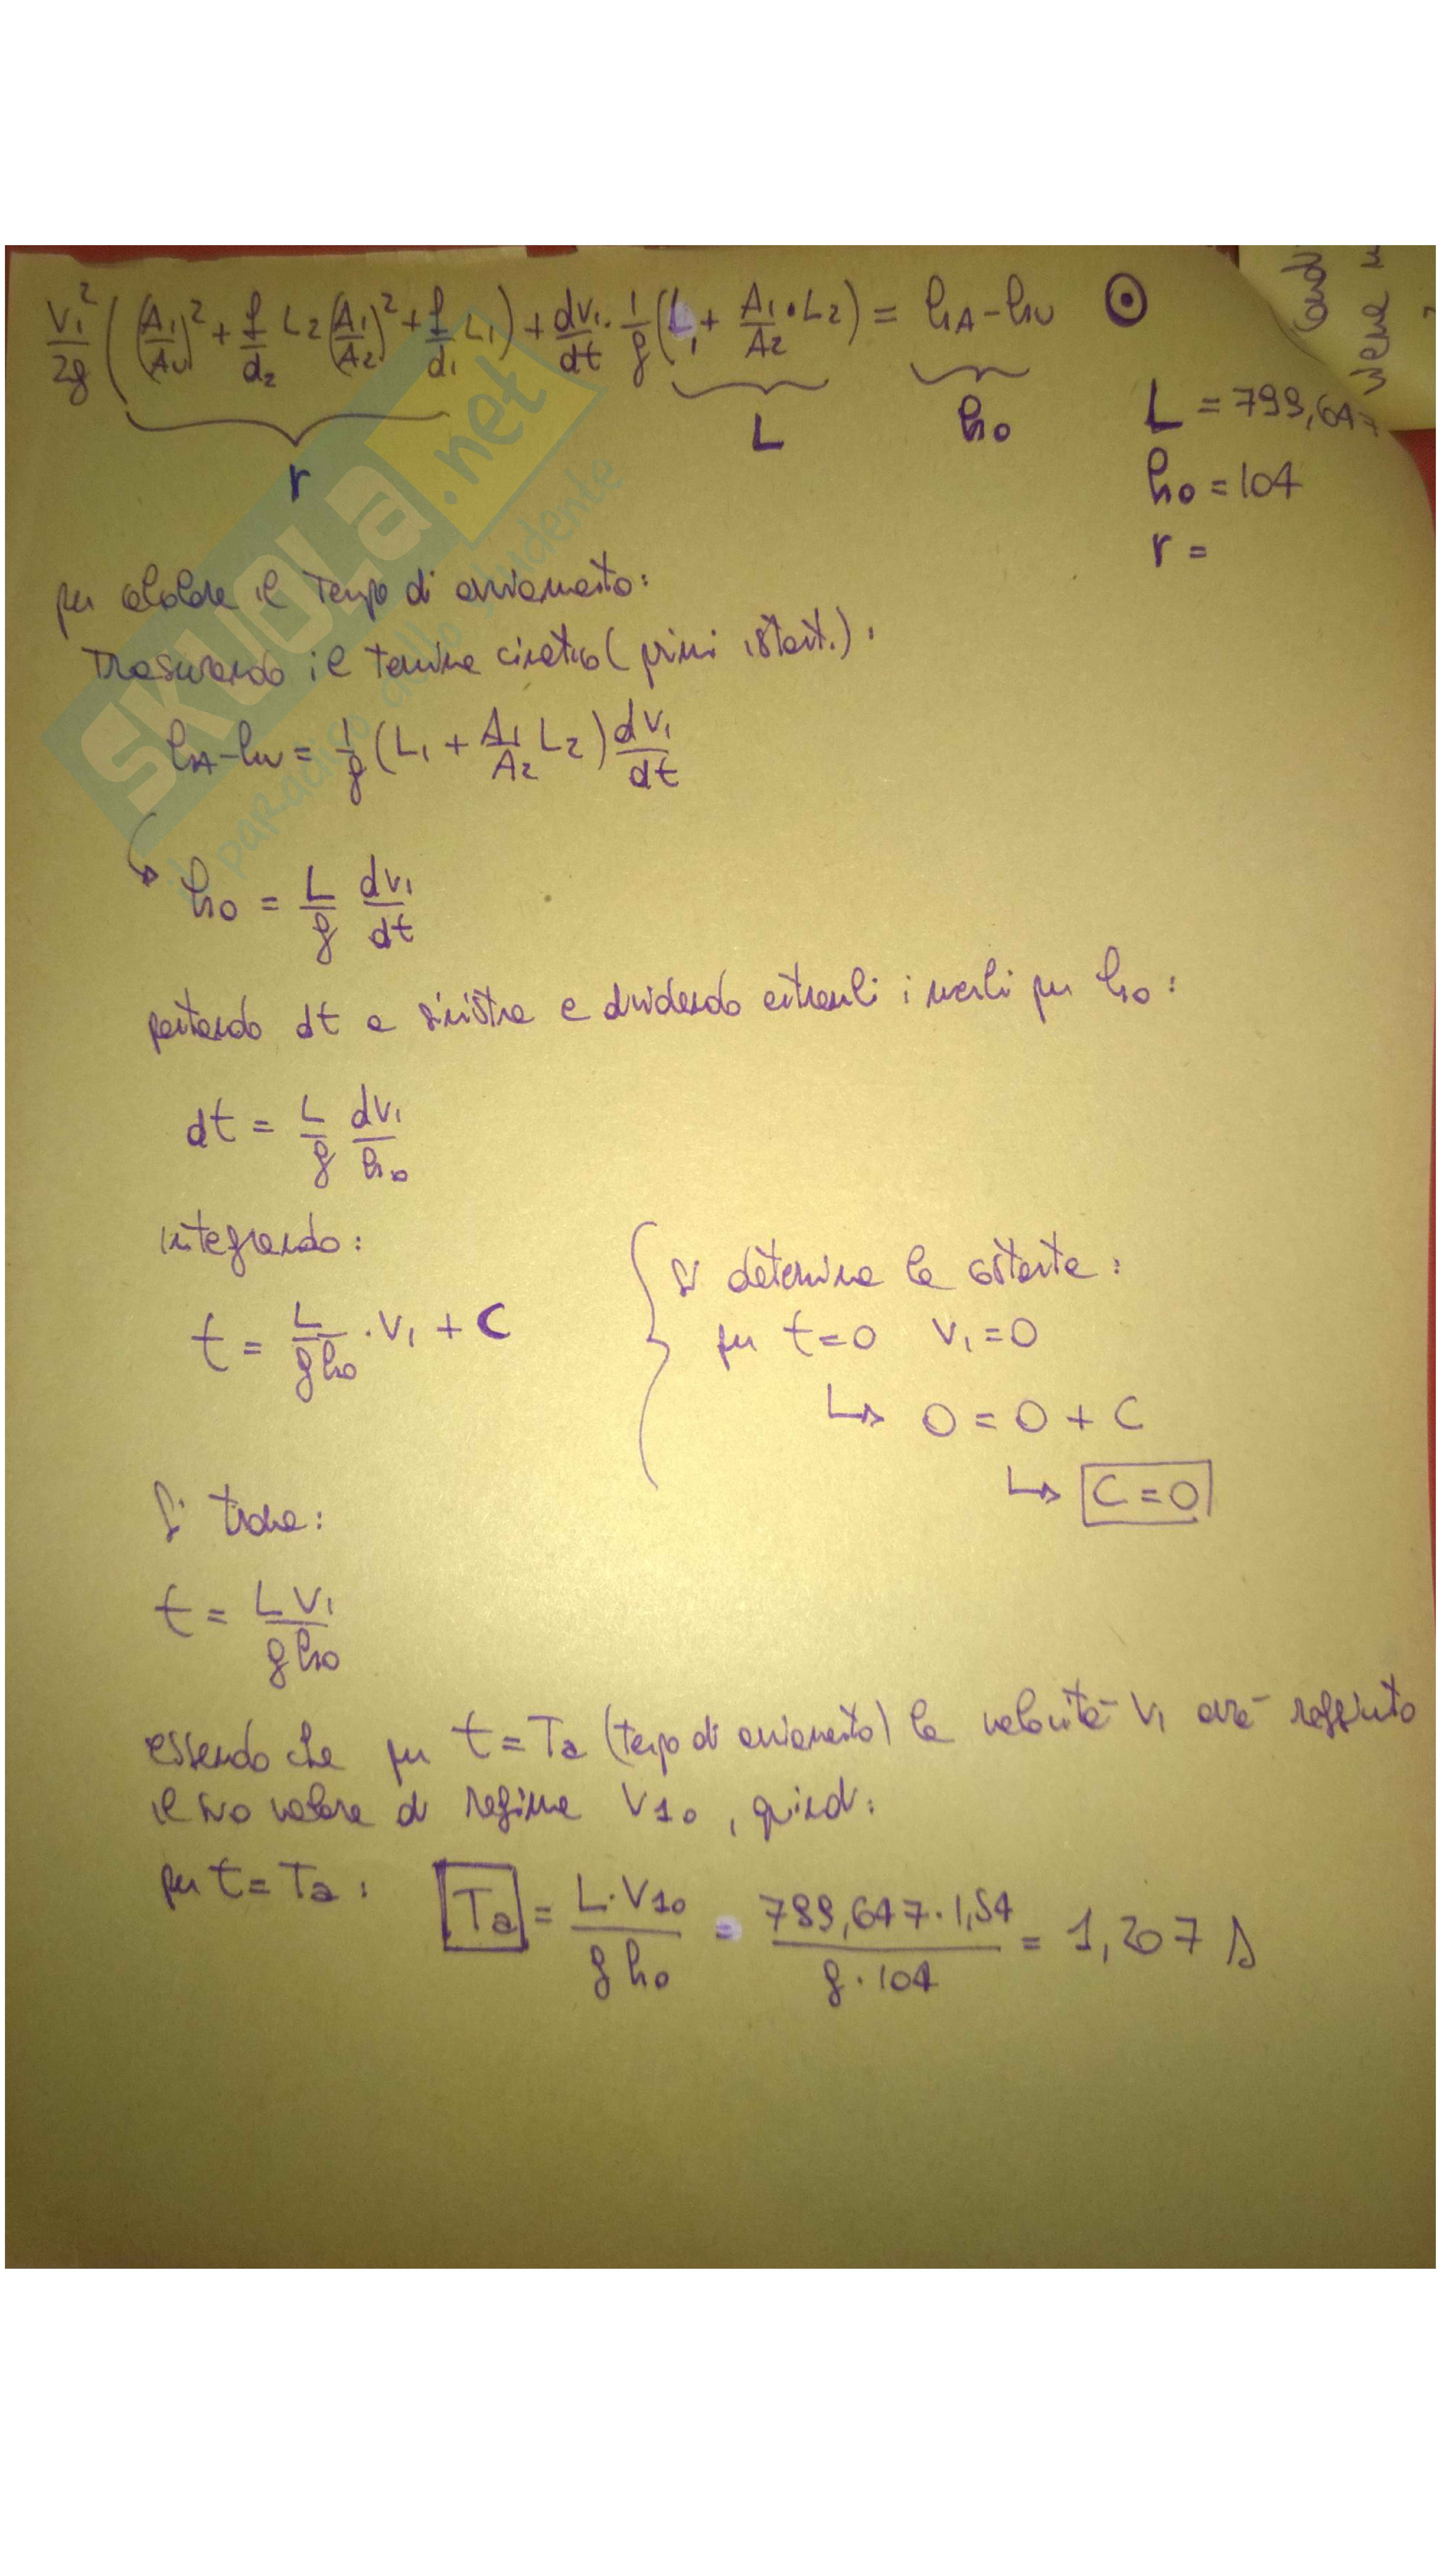 V₁²/2g ((A₁/Aᵤ)² + f/d₂ L₂ (A₁/A₂)² + f/d₁ L₁) + dV₁/dt · 1/g (L₁ + A₁/A₂ · L₂) = hA - hu ⊙
r L h₀
L = 799,647
h₀ = 104
r =
per calcolare il tempo di avviamento:
Trascurando il termine cinetico (primi istanti):
hA - hu = 1/g (L₁ + A₁/A₂ L₂) dV₁/dt
↳ h₀ = L/g dV₁/dt
portando dt a sinistra e dividendo entrambi i membri per h₀:
dt = L/g dV₁/h₀
integrando:
t = L/gh₀ · V₁ + C
Si determina la costante:
per t=0 V₁=0
↳ 0 = 0 + C
↳ C = 0
Si trova:
t = L V₁/gh₀
essendo che per t = Ta (tempo di avviamento) la velocità V₁ avrà raggiunto
il suo valore di regime V₁₀, quindi:
per t = Ta : Ta = L·V₁₀/g h₀ = 799,647·1,54/g·104 = 1,207 s
SKUOLA.net
il paradiso dello studente